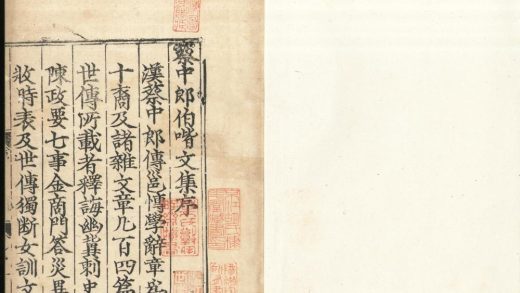 蔡中郎伯喈文集序
漢蔡中郎傳邕愽學辭章
十裔及諸雜文章凡百四篇
世傳所載者釋誨幽冀刺史
陳政要七事金商門答災異
牧時表及世傳獨斷女訓文